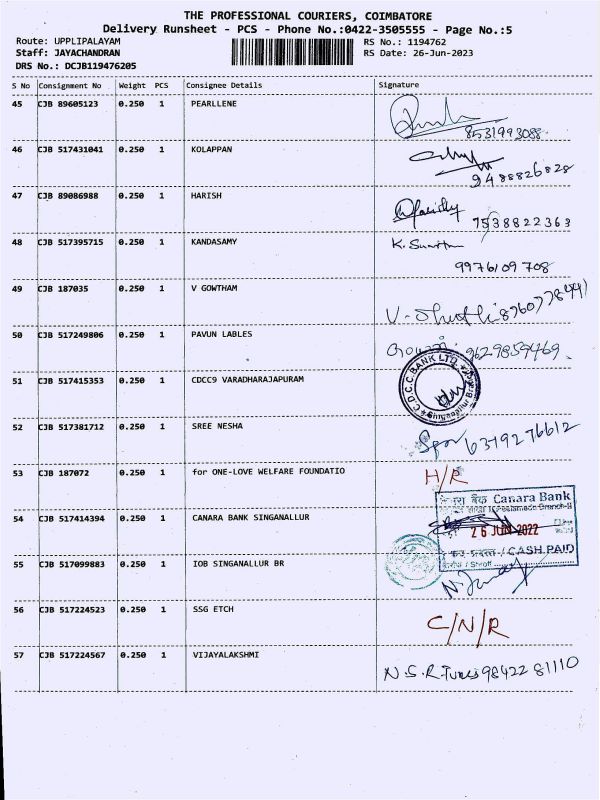 THE PROFESSIONAL COURIERS, COIMBATORE
Delivery Runsheet - PCS - Phone No.:0422-3505555 - Page No.:5
Route: UPPLIPALAYAM RS No.: 1194762
Staff: JAYACHANDRAN RS Date: 26-Jun-2023
DRS No.: DCJB119476205
S No Consignment No Weight PCS Consignee Details Signature
45 CJB 89605123 0.250 1 PEARLLENE
8531993088
46 CJB 517431041 0.250 1 KOLAPPAN
9488826828
47 CJB 89086988 0.250 1 HARISH
7538822363
48 CJB 517395715 0.250 1 KANDASAMY K.
9976109708
49 CJB 187035 0.250 1 V GOWTHAM
V. 8760778441
50 CJB 517249806 0.250 1 PAVUN LABLES
9629859469
51 CJB 517415353 0.250 1 CDCC9 VARADHARAJAPURAM
C.D.C.C.BANK LTD.
52 CJB 517381712 0.250 1 SREE NESHA
6379276612
53 CJB 187072 0.250 1 for ONE-LOVE WELFARE FOUNDATIO H/R
बैंक Canara Bank
54 CJB 517414394 0.250 1 CANARA BANK SINGANALLUR
26 JUN 2022
/ CASH PAID
/ Shroff
55 CJB 517099883 0.250 1 IOB SINGANALLUR BR
56 CJB 517224523 0.250 1 SSG ETCH
C/N/R
57 CJB 517224567 0.250 1 VIJAYALAKSHMI
N.S.R. 98422 81110